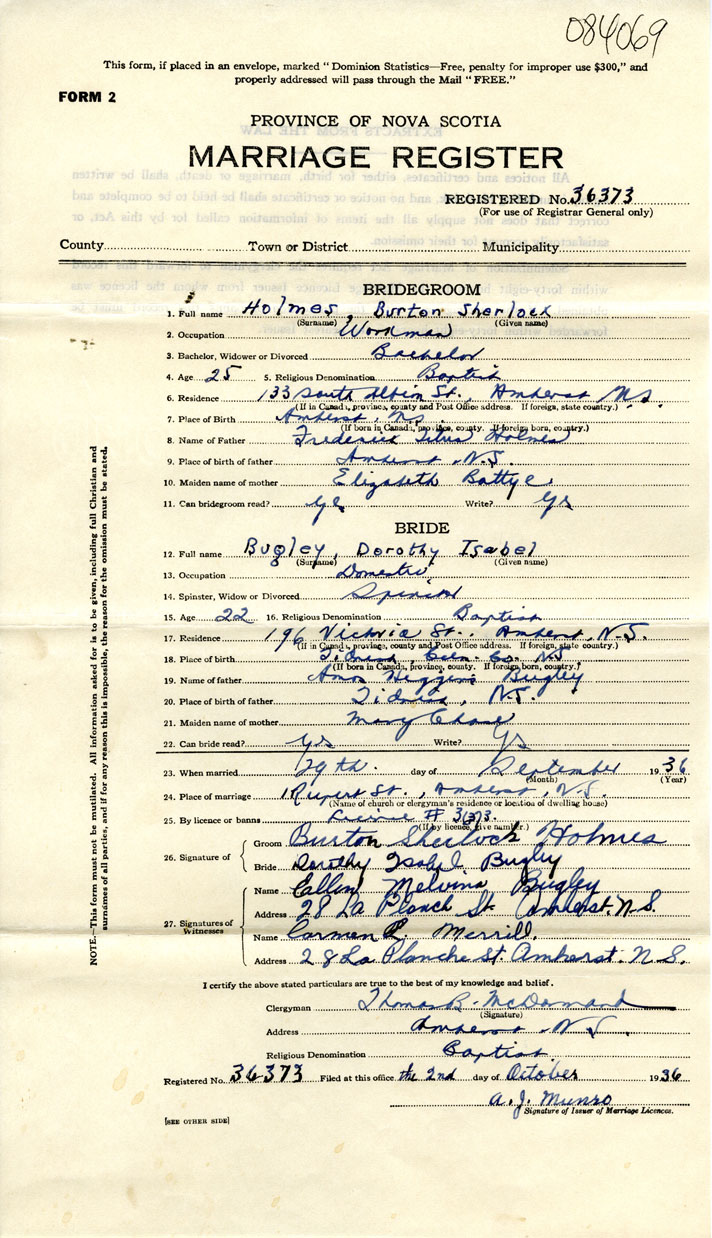 084069
This form, if placed in an envelope, marked "Dominion Statistics—Free, penalty for improper use $300," and
properly addressed will pass through the Mail "FREE."
FORM 2
PROVINCE OF NOVA SCOTIA
MARRIAGE REGISTER
REGISTERED No. 36373
(For use of Registrar General only)
County Town or District Municipality
BRIDEGROOM
1. Full name Holmes, Burton Sherlock
(Surname) (Given name)
2. Occupation Workman
3. Bachelor, Widower or Divorced Bachelor
4. Age 25 5. Religious Denomination Baptist
6. Residence 133 South Albion St., Amherst N.S.
(If in Canada, province, county and Post Office address. If foreign, state country.)
7. Place of Birth Amherst, N.S.
(If born in Canada, province, county. If foreign born, country.)
8. Name of Father Frederick Titus Holmes
9. Place of birth of father Amherst, N.S
10. Maiden name of mother Elizabeth Battye
11. Can bridegroom read? yes Write? yes
BRIDE
12. Full name Bugley, Dorothy Isabel
(Surname) (Given name)
13. Occupation Domestic
14. Spinster, Widow or Divorced Spinster
15. Age 22 16. Religious Denomination Baptist
17. Residence 196 Victoria St., Amherst, N.S.
(If in Canada, province, county and Post Office address. If foreign, state country.)
18. Place of birth Tidnish, Cum. Co. N.S
(If born in Canada, province, county. If foreign born, country.)
19. Name of father Amos Higgins Bugley
20. Place of birth of father Tidnish, N.S.
21. Maiden name of mother Mary Chase
22. Can bride read? yes Write? yes
23. When married 29th. day of September 1936
(Month) (Year)
24. Place of marriage 1 Rupert St., Amherst, N.S.
(Name of church or clergyman's residence or location of dwelling house)
25. By licence or banns License #
(If by licence, give number.)
26. Signature of Groom Burton Sherlock Holmes
Bride Dorothy Isabel Bugley
27. Signatures of Witnesses Name Melvina Bugley
Address 28 La Planch St. Amherst. N.S.
Name Carmen L. Merrill.
Address 28 La Planche St. Amherst. N.S.
I certify the above stated particulars are true to the best of my knowledge and belief.
Clergyman Thomas B. McDormand
(Signature)
Address Amherst N.S.
Religious Denomination Baptist
Registered No. 36373 Filed at this office the 2nd day of October 1936
A. J. Munro
Signature of Issuer of Marriage Licences.
[SEE OTHER SIDE]
NOTE.—This form must not be mutilated. All information asked for is to be given, including full Christian and
surnames of all parties, and if for any reason this is impossible, the reason for the omission must be stated.